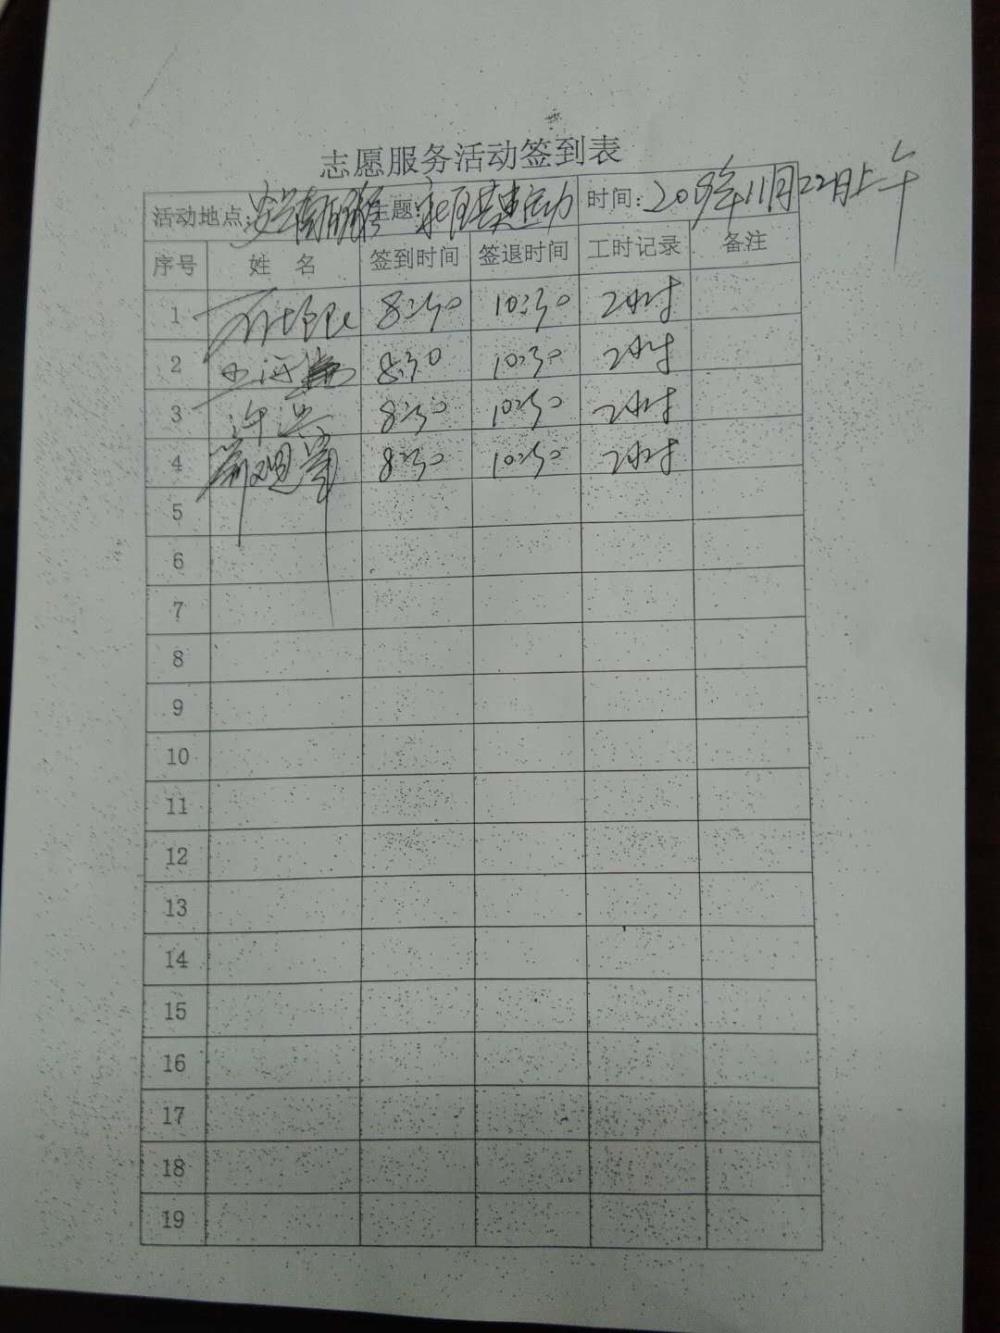 志愿服务活动签到表
活动地点: 主题: 时间: 2019年11月22日上午
序号 姓 名 签到时间 签退时间 工时记录 备注
1 8:30 10:30 2小时
2 王 8:30 10:30 2小时
3 许 8:30 10:30 2小时
4 8:30 10:30 2小时
5
6
7
8
9
10
11
12
13
14
15
16
17
18
19